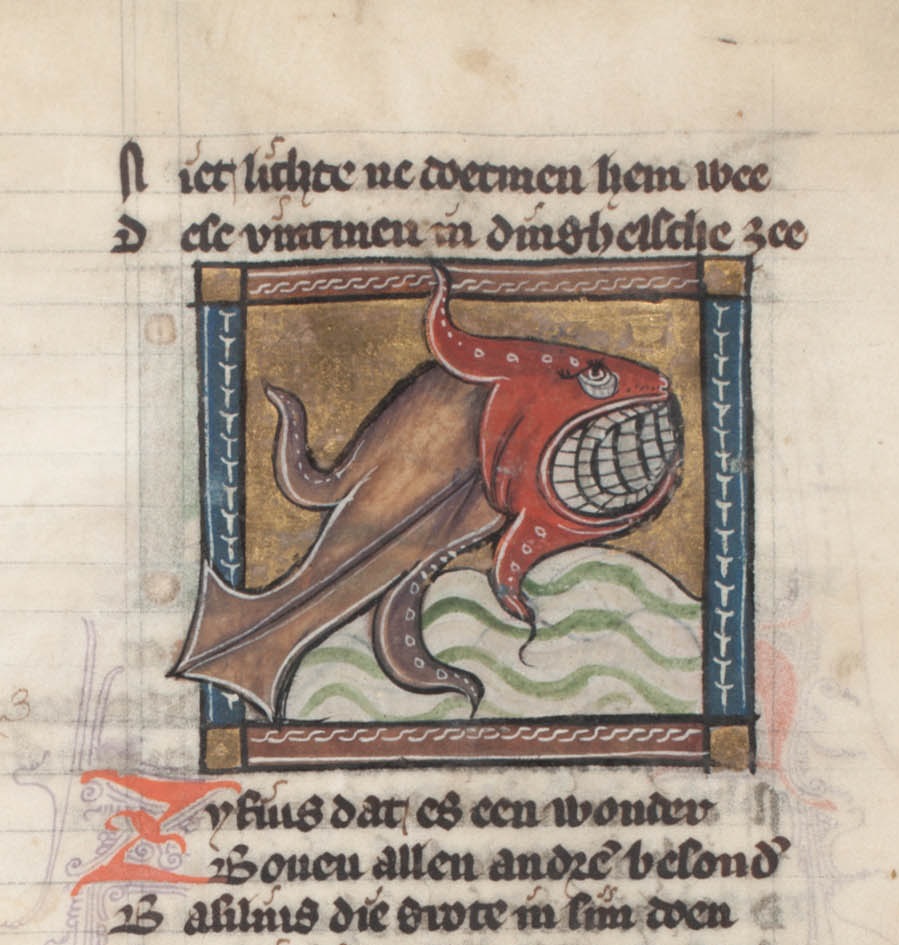 Niet lichte ne doetmen hem wee
Dese vintmen in dinghelsche zee
Zyfius dat es een wonder
Bouen allen andre besond'
Basilius die grote in sijn doen